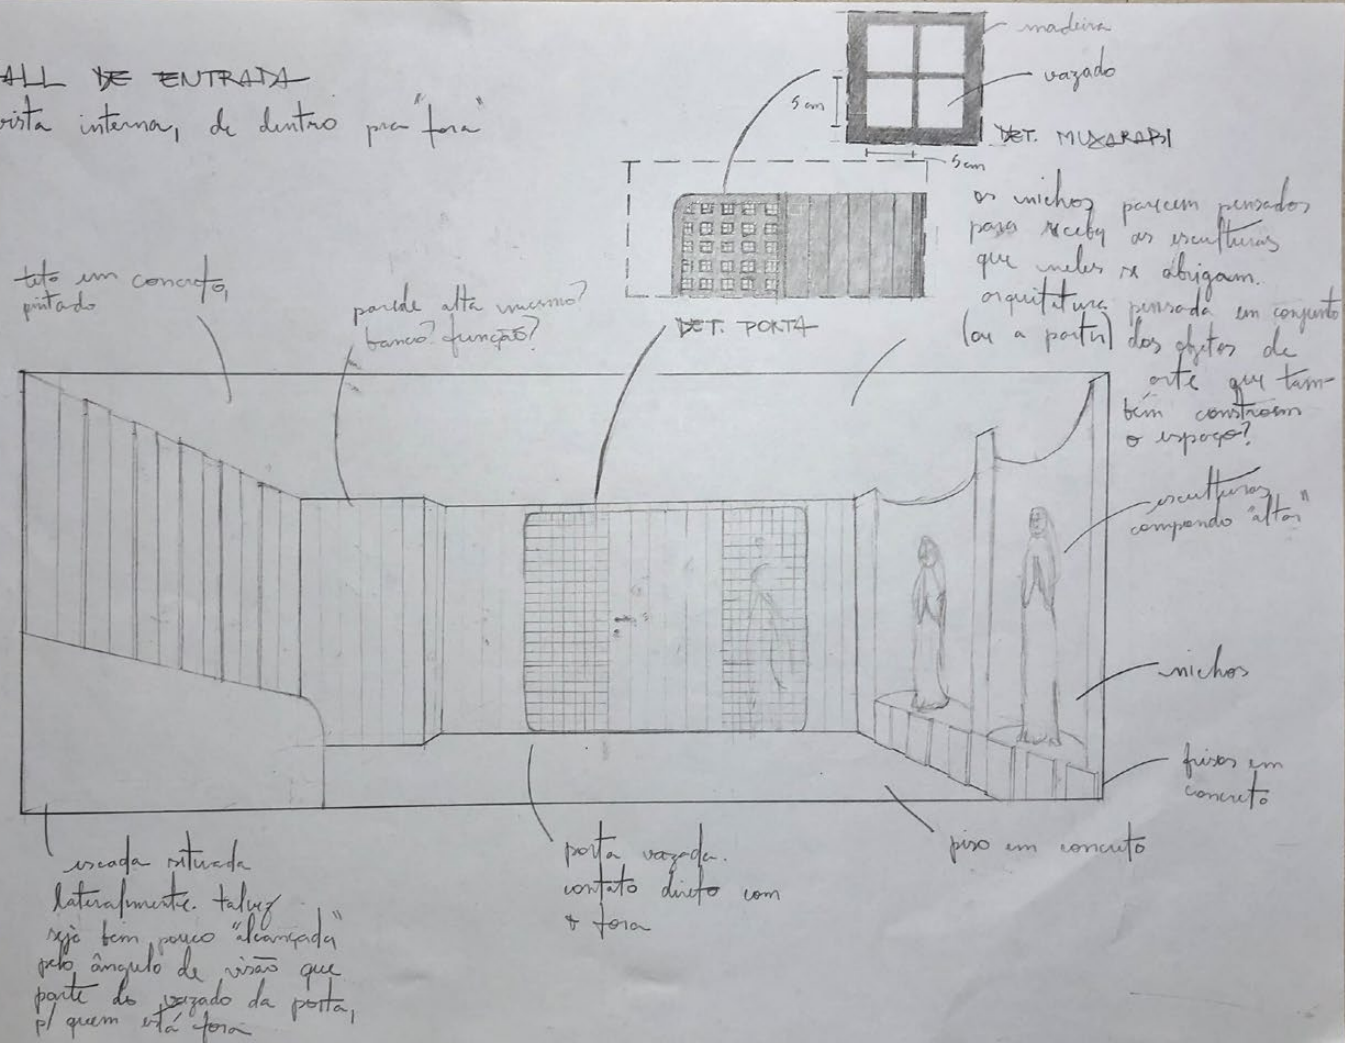 ALL DE ENTRADA
vista interna, de dentro pra "fora"
madeira
vazado
5 cm
DET. MUXARABI
5 cm
os nichos parecem pensados
para receber as esculturas
que neles se abrigam.
arquitetura pensada em conjunto
(ou a partir) dos objetos de
arte que tam-
bém constroem
o espaço?
teto em concreto,
pintado
parede alta mesmo?
banco? função?
DET. PORTA
esculturas
compondo "altar"
nichos
frisos em
concreto
piso em concreto
porta vazada.
contato direto com
o fora
escada situada
lateralmente. talvez
seja bem pouco "alcançada"
pelo ângulo de visão que
parte do vazado da porta,
p/ quem está fora